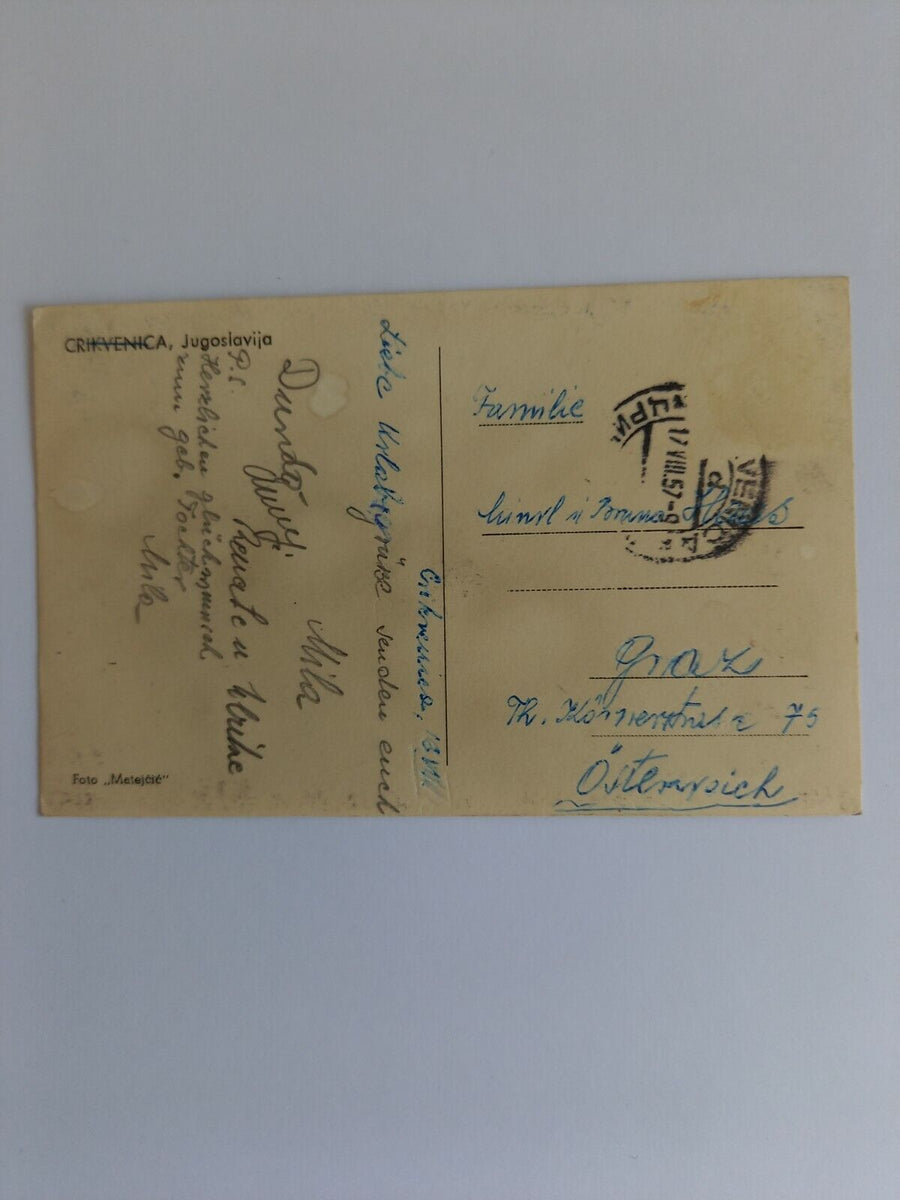 CRIKVENICA, Jugoslavija
Crikvenica, 13.VIII
Liebe Urlaubsgrüße senden euch
Mila
Renate u Ulrike
P.S.
Herzlichen glückwunsch
zum geb. Tochter
Mila
Foto „Matejčić"
Familie
u Bruno
Graz
Th. Körnerstraße 75
Österreich
ЦРИ
17 VIII.57-9
VENICA